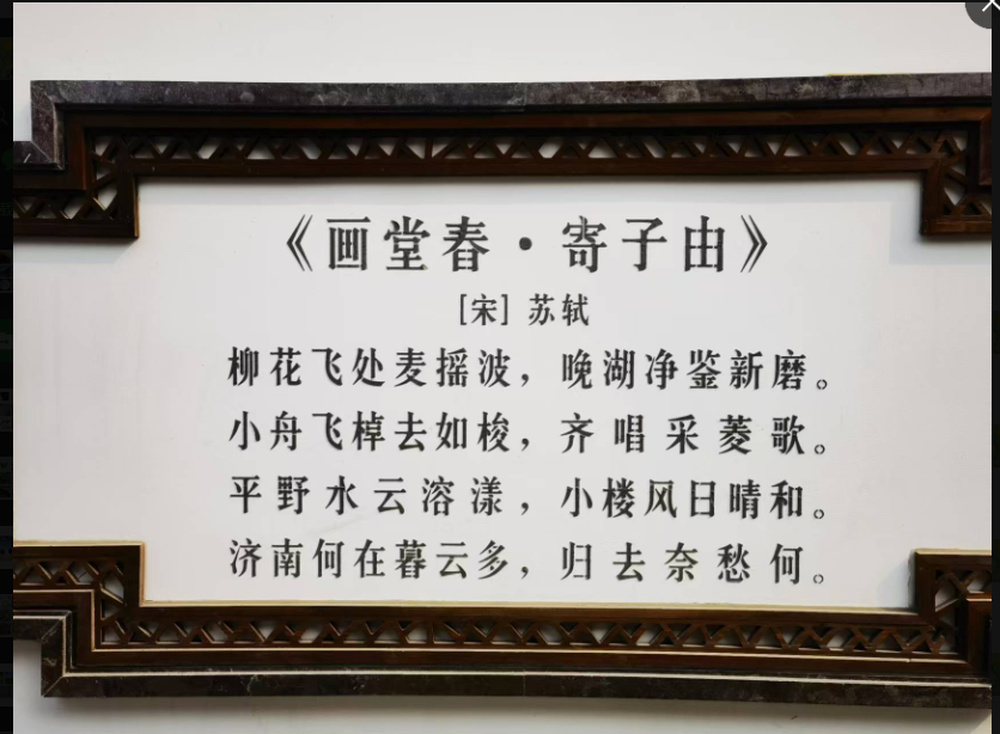 《画堂春·寄子由》
[宋] 苏轼
柳花飞处麦摇波，晚湖净鉴新磨。
小舟飞棹去如梭，齐唱采菱歌。
平野水云溶漾，小楼风日晴和。
济南何在暮云多，归去奈愁何。